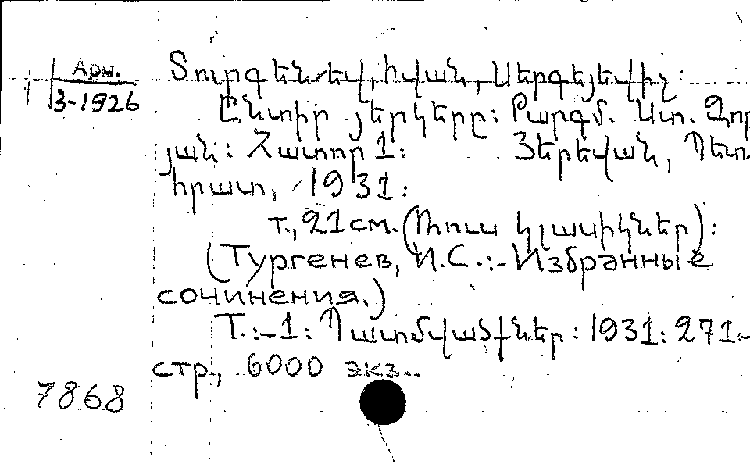 Арм.
3-1926
Տուրգենեվ, Իվան, Սերգեյեվիչ:
Ընտիր յերկերը: Թարգմ. Ստ. Զոր
յան: Հատոր 1: Յերեվան, Պետ
հրատ, 1931:
т., 21 см. (Ռուս կլասիկներ):
(Тургенев, И.С.:-Избранные
сочинения.)
Т.:-1: Պատմվածքներ: 1931: 271
стр., 6000 экз..
7868